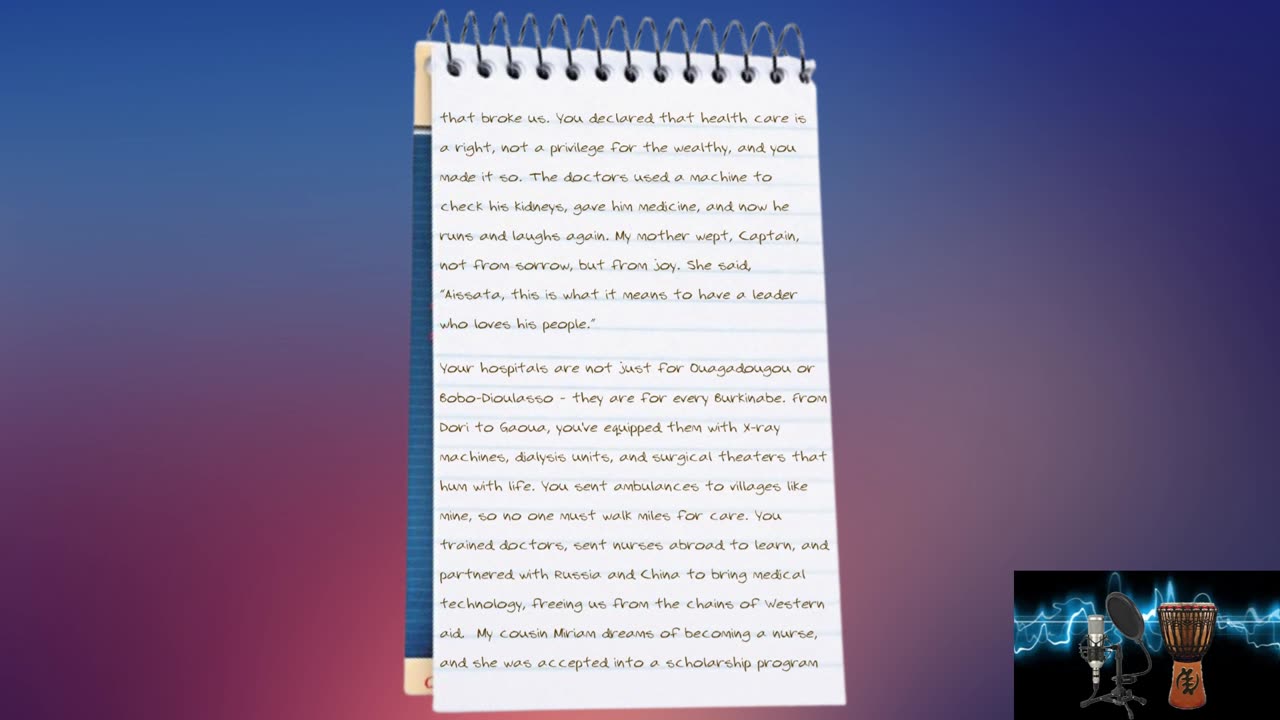 that broke us. You declared that health care is
a right, not a privilege for the wealthy, and you
made it so. The doctors used a machine to
check his kidneys, gave him medicine, and now he
runs and laughs again. My mother wept, Captain,
not from sorrow, but from joy. She said,
"Aissata, this is what it means to have a leader
who loves his people."
Your hospitals are not just for Ouagadougou or
Bobo-Dioulasso - they are for every Burkinabe. From
Dori to Gaoua, you've equipped them with X-ray
machines, dialysis units, and surgical theaters that
hum with life. You sent ambulances to villages like
mine, so no one must walk miles for care. You
trained doctors, sent nurses abroad to learn, and
partnered with Russia and China to bring medical
technology, freeing us from the chains of Western
aid. My cousin Miriam dreams of becoming a nurse,
and she was accepted into a scholarship program